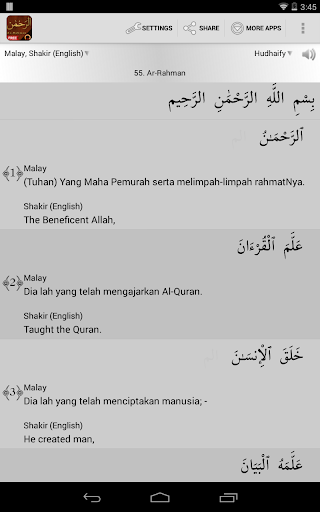 3:45
الرحمن
FREE
SETTINGS
SHARE
MORE APPS
Malay, Shakir (English)
Hudhaify
55. Ar-Rahman
بِسْمِ اللَّهِ الرَّحْمَٰنِ الرَّحِيمِ
ٱلرَّحْمَـٰنُ
﴾1﴿
Malay
(Tuhan) Yang Maha Pemurah serta melimpah-limpah rahmatNya.
Shakir (English)
The Beneficent Allah,
عَلَّمَ ٱلْقُرْءَانَ
﴾2﴿
Malay
Dia lah yang telah mengajarkan Al-Quran.
Shakir (English)
Taught the Quran.
خَلَقَ ٱلْإِنسَـٰنَ
﴾3﴿
Malay
Dia lah yang telah menciptakan manusia; -
Shakir (English)
He created man,
عَلَّمَهُ ٱلْبَيَانَ